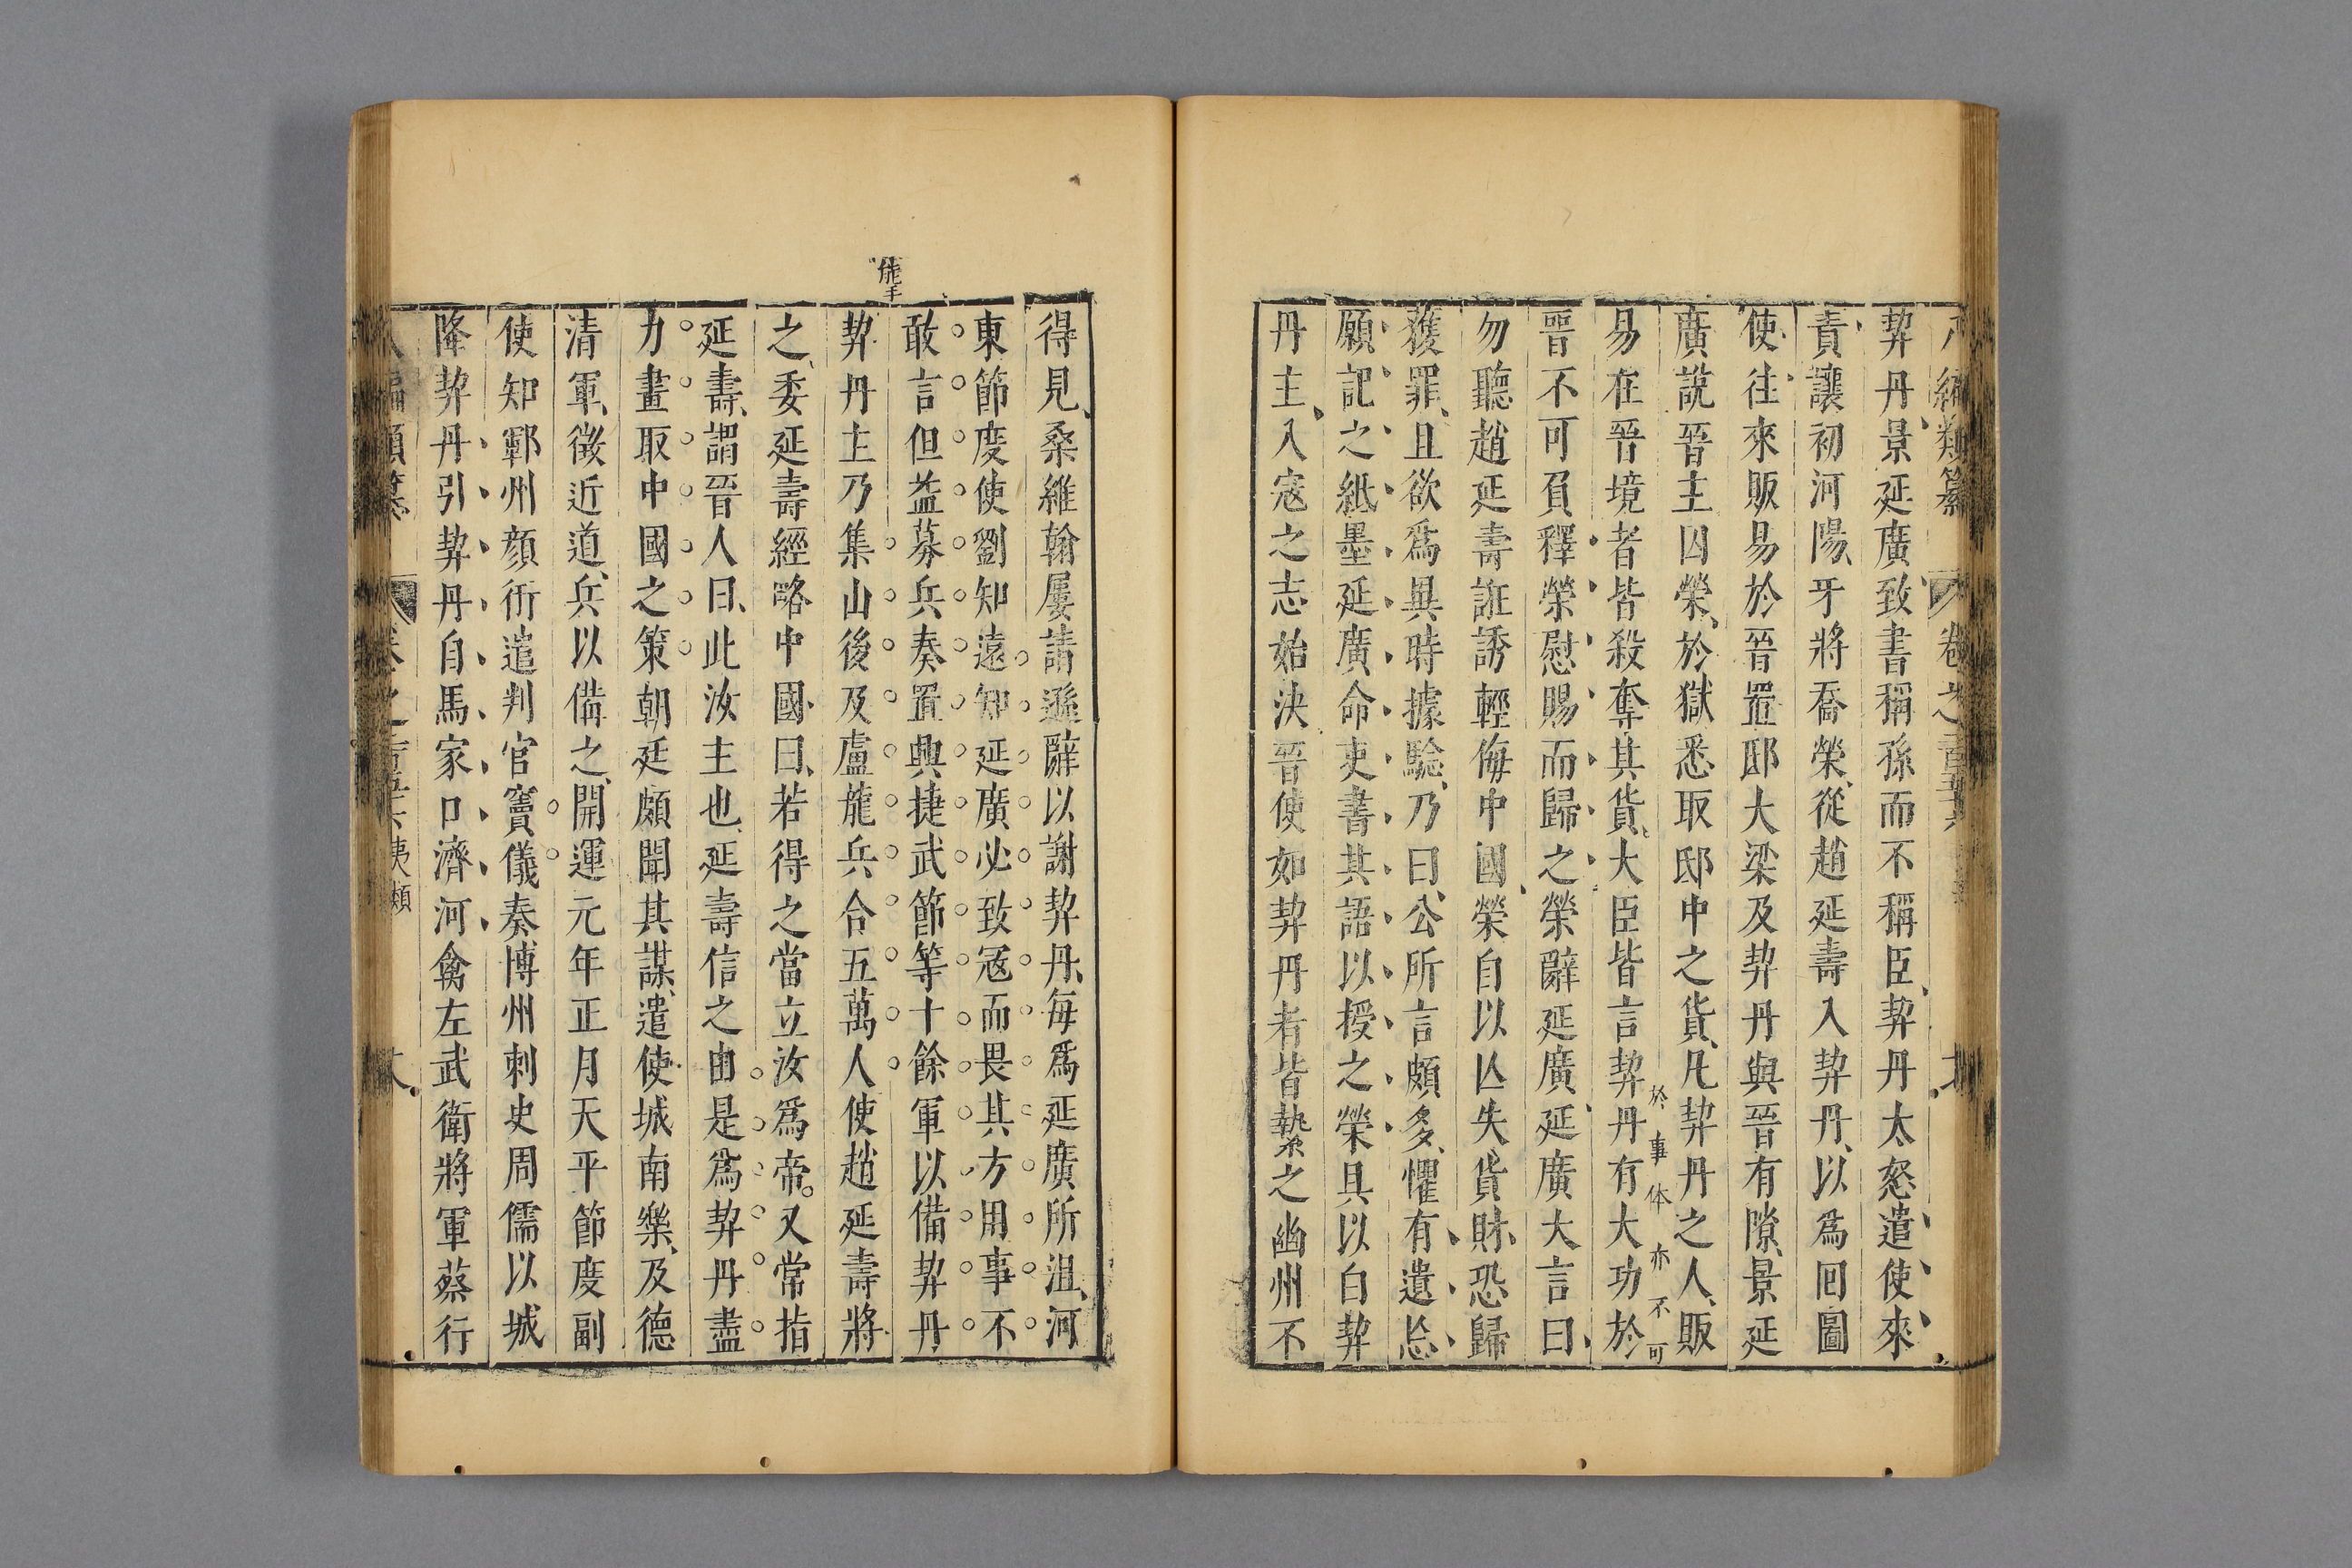 編類纂 卷之一百五十六
契丹景延廣致書稱孫而不稱臣契丹太怒遣使來
責讓初河陽牙將喬榮從趙延壽入契丹以爲回圖
使往來販易於晉置邸大梁及契丹與晉有隙景延
廣說晉主囚榮於獄悉取邸中之貨凡契丹之人販
於事体亦不可
易在晉境者皆殺奪其貨大臣皆言契丹有大功於
晉不可負釋榮慰賜而歸之榮辭延廣延廣大言曰
勿聽趙延壽誑誘輕侮中國榮自以亾失貨財恐歸
獲罪且欲爲異時據驗乃曰公所言頗多懼有遺忘
願記之紙墨延廣命吏書其語以授之榮具以白契
丹主入寇之志始決晉使如契丹者皆縶之幽州不
得見桑維翰屢請遜辭以謝契丹每爲延廣所沮河
東節度使劉知遠知延廣必致寇而畏其方用事不
能手
敢言但益募兵奏置興捷武節等十餘軍以備契丹
契丹主乃集山後及盧龍兵合五萬人使趙延壽將
之委延壽經略中國曰若得之當立汝爲帝又常指
延壽謂晉人曰此汝主也延壽信之由是爲契丹盡
力畫取中國之策朝廷頗聞其謀遣使城南樂及德
清軍徵近道兵以備之開運元年正月天平節度副
使知鄆州顔衎遣判官竇儀奏博州刺史周儒以城
降契丹引契丹自馬家口濟河禽左武衛將軍蔡行
編類纂 卷之 夷類